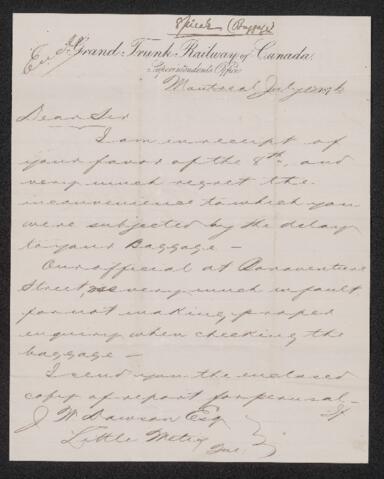 (Baggage)
Grand Trunk Railway of Canada.
Superintendent's Office
Montreal July
Dear Sir
I am in receipt of
your favor of the 8th and
very much regret the
inconvenience to which you
were subjected by the delay
to your Baggage —
Our official at Bonaventure
Street, very much in fault
for not making proper
enquiry when checking the
baggage —
I send you the enclosed
copy of report for perusal —
J W Dawson Esq
Little Metis
Que.